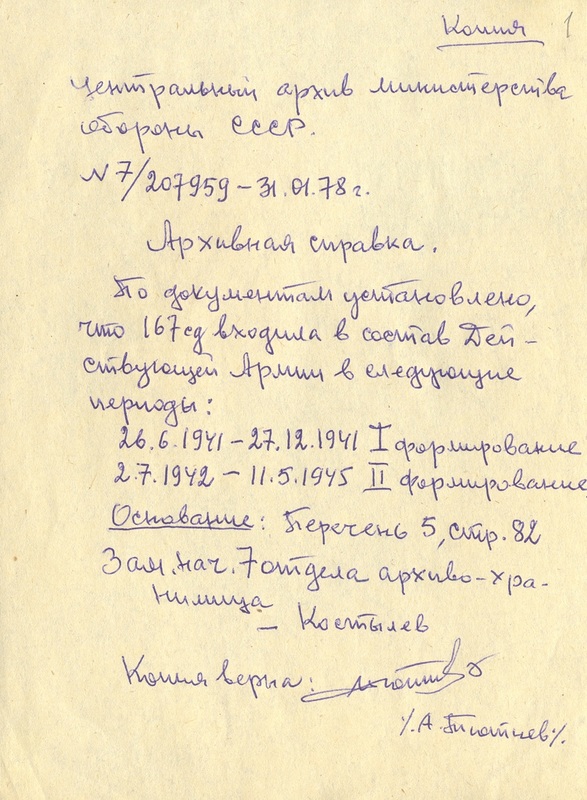 Копия 1
Центральный архив министерства
обороны СССР.
N 7/207959 – 31.01.78 г.
Архивная справка.
По документам установлено,
что 167 сд входила в состав Дей-
ствующей Армии в следующие
периоды:
26.6.1941 – 27.12.1941 I формирование
2.7.1942 – 11.5.1945 II формирование
Основание: Перечень 5, стр. 82
Зам. нач. 7 отдела архиво-хра-
нилища
– Костылев
Копия верна: